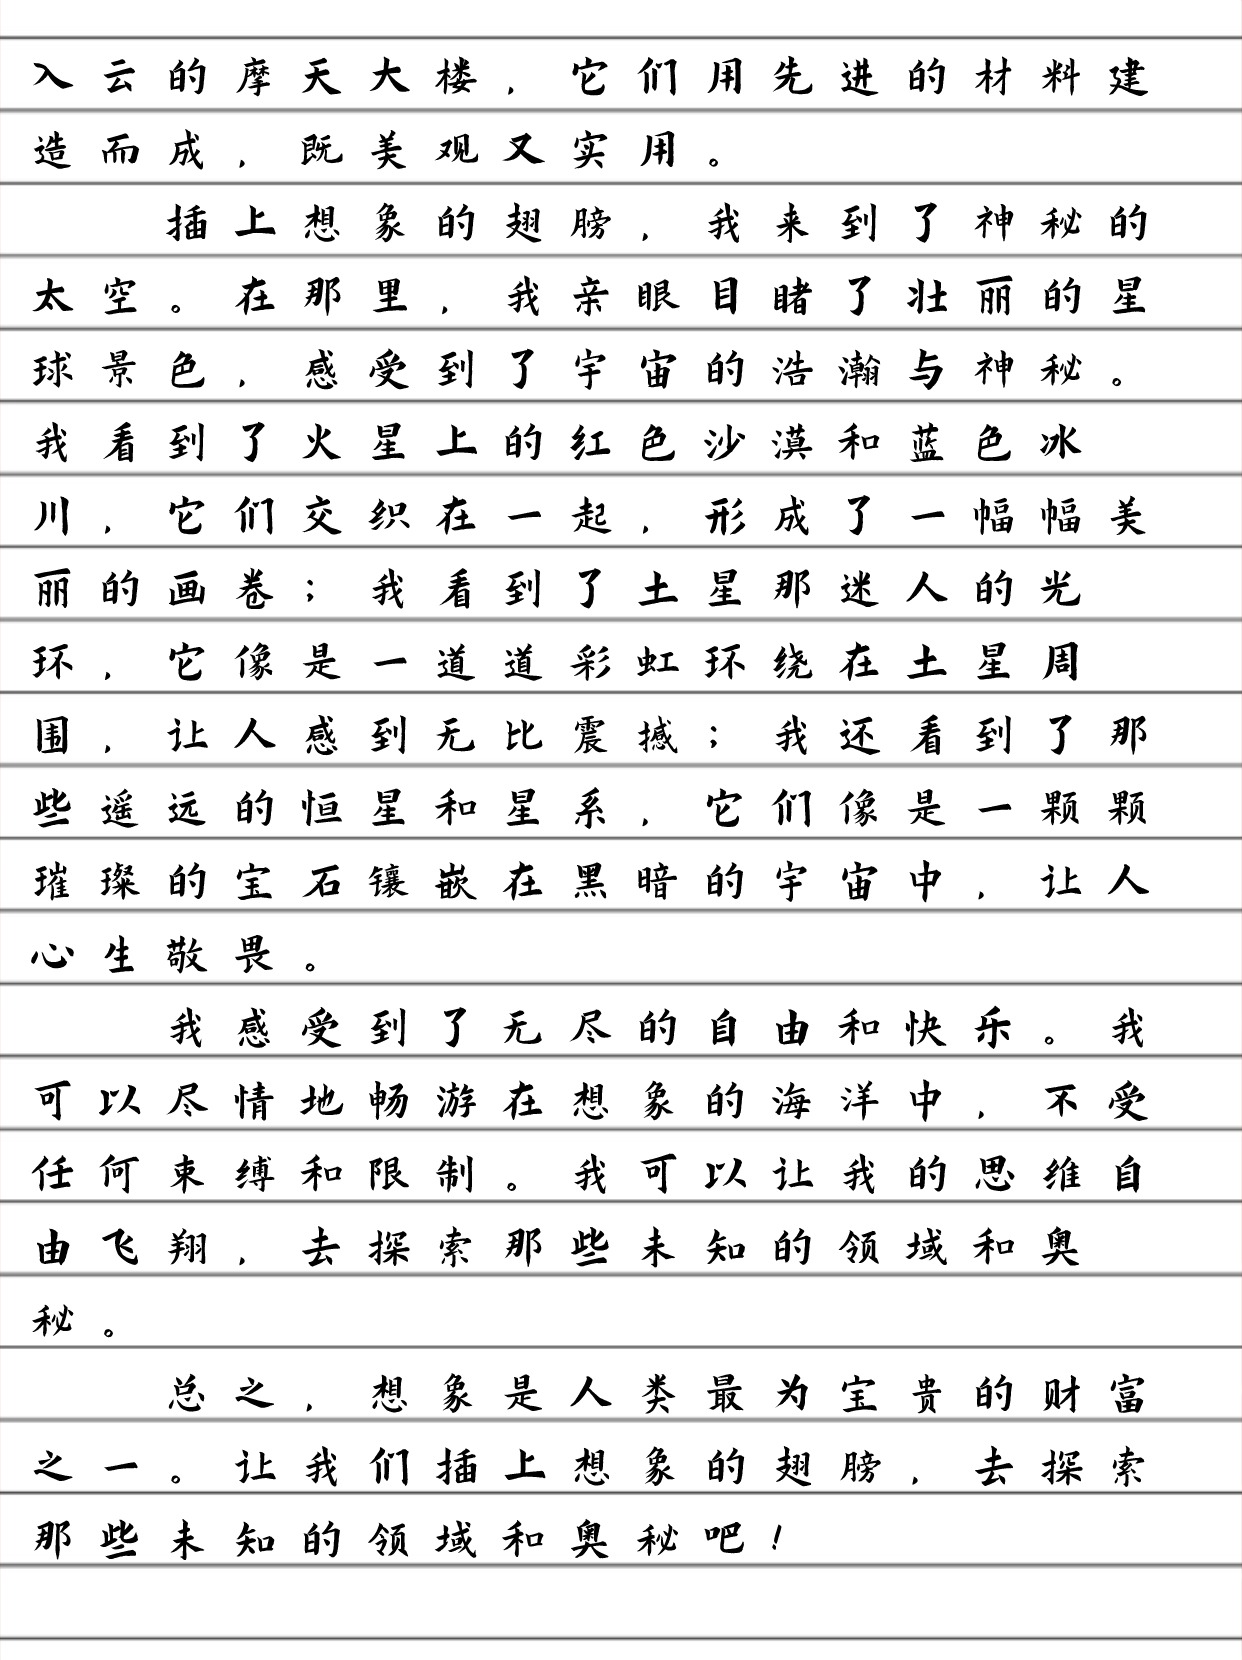 入云的摩天大楼，它们用先进的材料建
造而成，既美观又实用。
插上想象的翅膀，我来到了神秘的
太空。在那里，我亲眼目睹了壮丽的星
球景色，感受到了宇宙的浩瀚与神秘。
我看到了火星上的红色沙漠和蓝色冰
川，它们交织在一起，形成了一幅幅美
丽的画卷；我看到了土星那迷人的光
环，它像是一道道彩虹环绕在土星周
围，让人感到无比震撼；我还看到了那
些遥远的恒星和星系，它们像是一颗颗
璀璨的宝石镶嵌在黑暗的宇宙中，让人
心生敬畏。
我感受到了无尽的自由和快乐。我
可以尽情地畅游在想象的海洋中，不受
任何束缚和限制。我可以让我的思维自
由飞翔，去探索那些未知的领域和奥
秘。
总之，想象是人类最为宝贵的财富
之一。让我们插上想象的翅膀，去探索
那些未知的领域和奥秘吧！